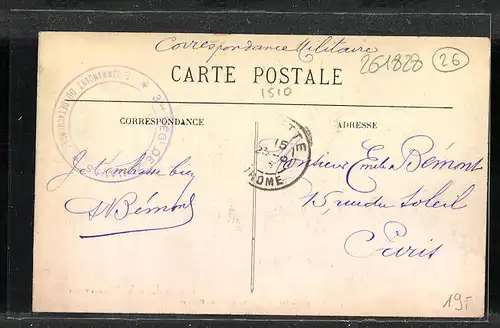 Correspondance Militaire
261828 26
CARTE POSTALE
1510
CORRESPONDANCE
ADRESSE
DROME
Je t'embrasse bien
A Bémont
Monsieur Emile Bémont
15, rue du Soleil
Paris
19,-